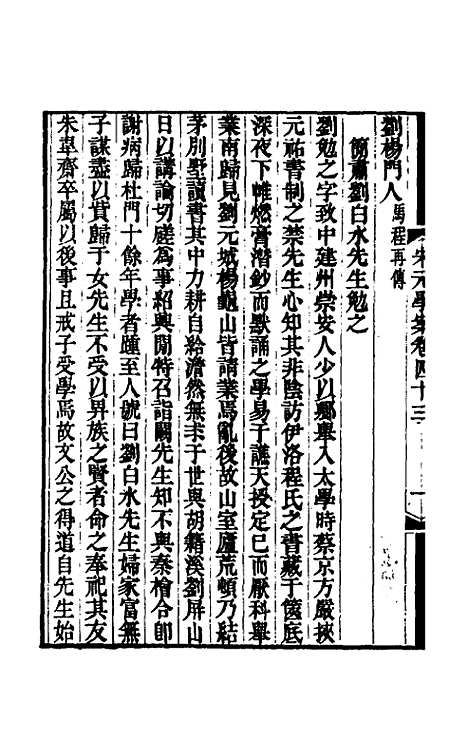 宋元學案卷四十三
劉楊門人馬程再傳
簡肅劉白水先生勉之
劉勉之字致中建州崇安人少以鄉舉入太學時蔡京方嚴挾
元祐書制之禁先生心知其非陰訪伊洛程氏之書藏于篋底
深夜下帷燃膏潛鈔而默誦之學易于譙天授定已而厭科舉
業南歸見劉元城楊龜山皆請業焉亂後故山室廬荒頓乃結
茅別墅讀書其中力耕自給澹然無求于世與胡籍溪劉屏山
日以講論切磋為事紹興閒特召詣闕先生知不與秦檜合卽
謝病歸杜門十餘年學者踵至人號曰劉白水先生婦家富無
子謀盡以貲歸于女先生不受以畀族之賢者命之奉祀其友
朱韋齋卒屬以後事且戒子受學焉故文公之得道自先生始